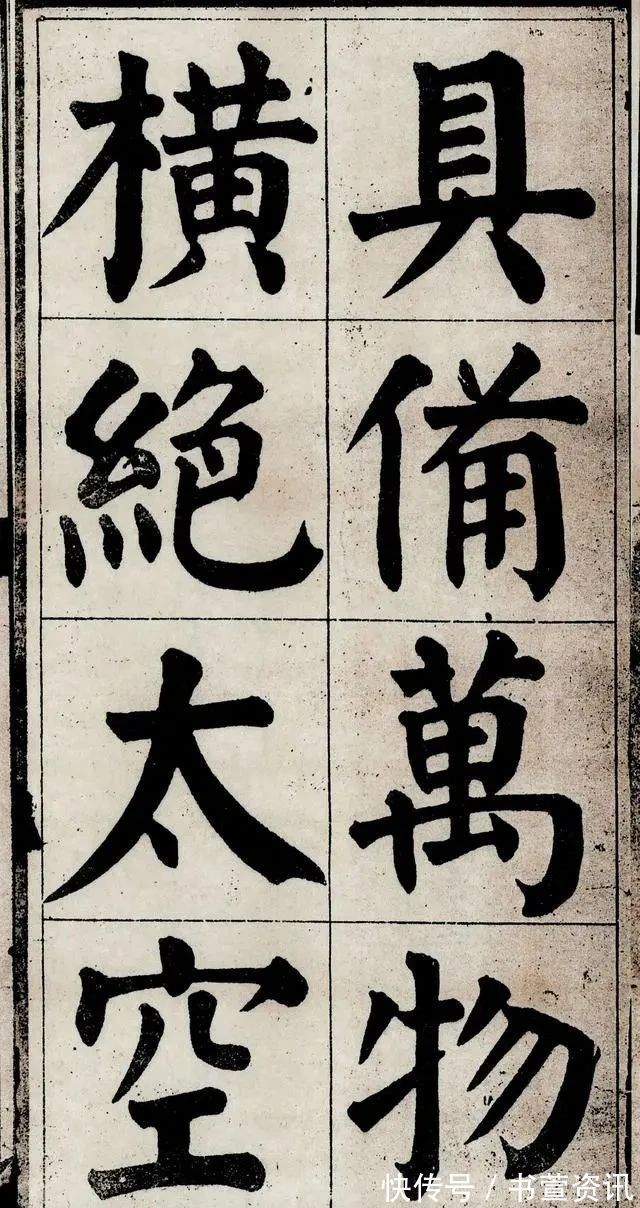 具備萬物
橫絕太空
快传号 / 书萱资讯